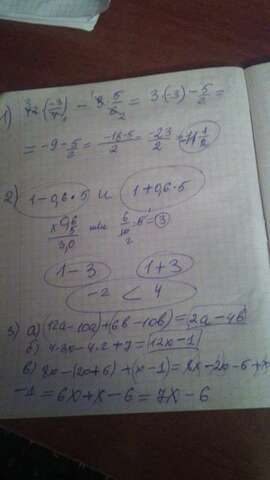 1) 12·(-3/4) - 8·5/2 = 3·(-3) - 5/2 =
= -9 - 5/2 = (-18-5)/2 = -23/2 = -11 1/2
2) 1-0,6·5 и 1+0,6·5
x 0,6 5 3,0 или 6/10·5=3
1-3 1+3
-2 < 4
3) а) (12a-10a)+(6b-10b)=2a-4b
б) 4·3x-4·2+7=12x-1
в) 8x-(2x+5)+(x-1)=8x-2x-5+x-
-1=6x+x-6=7x-6